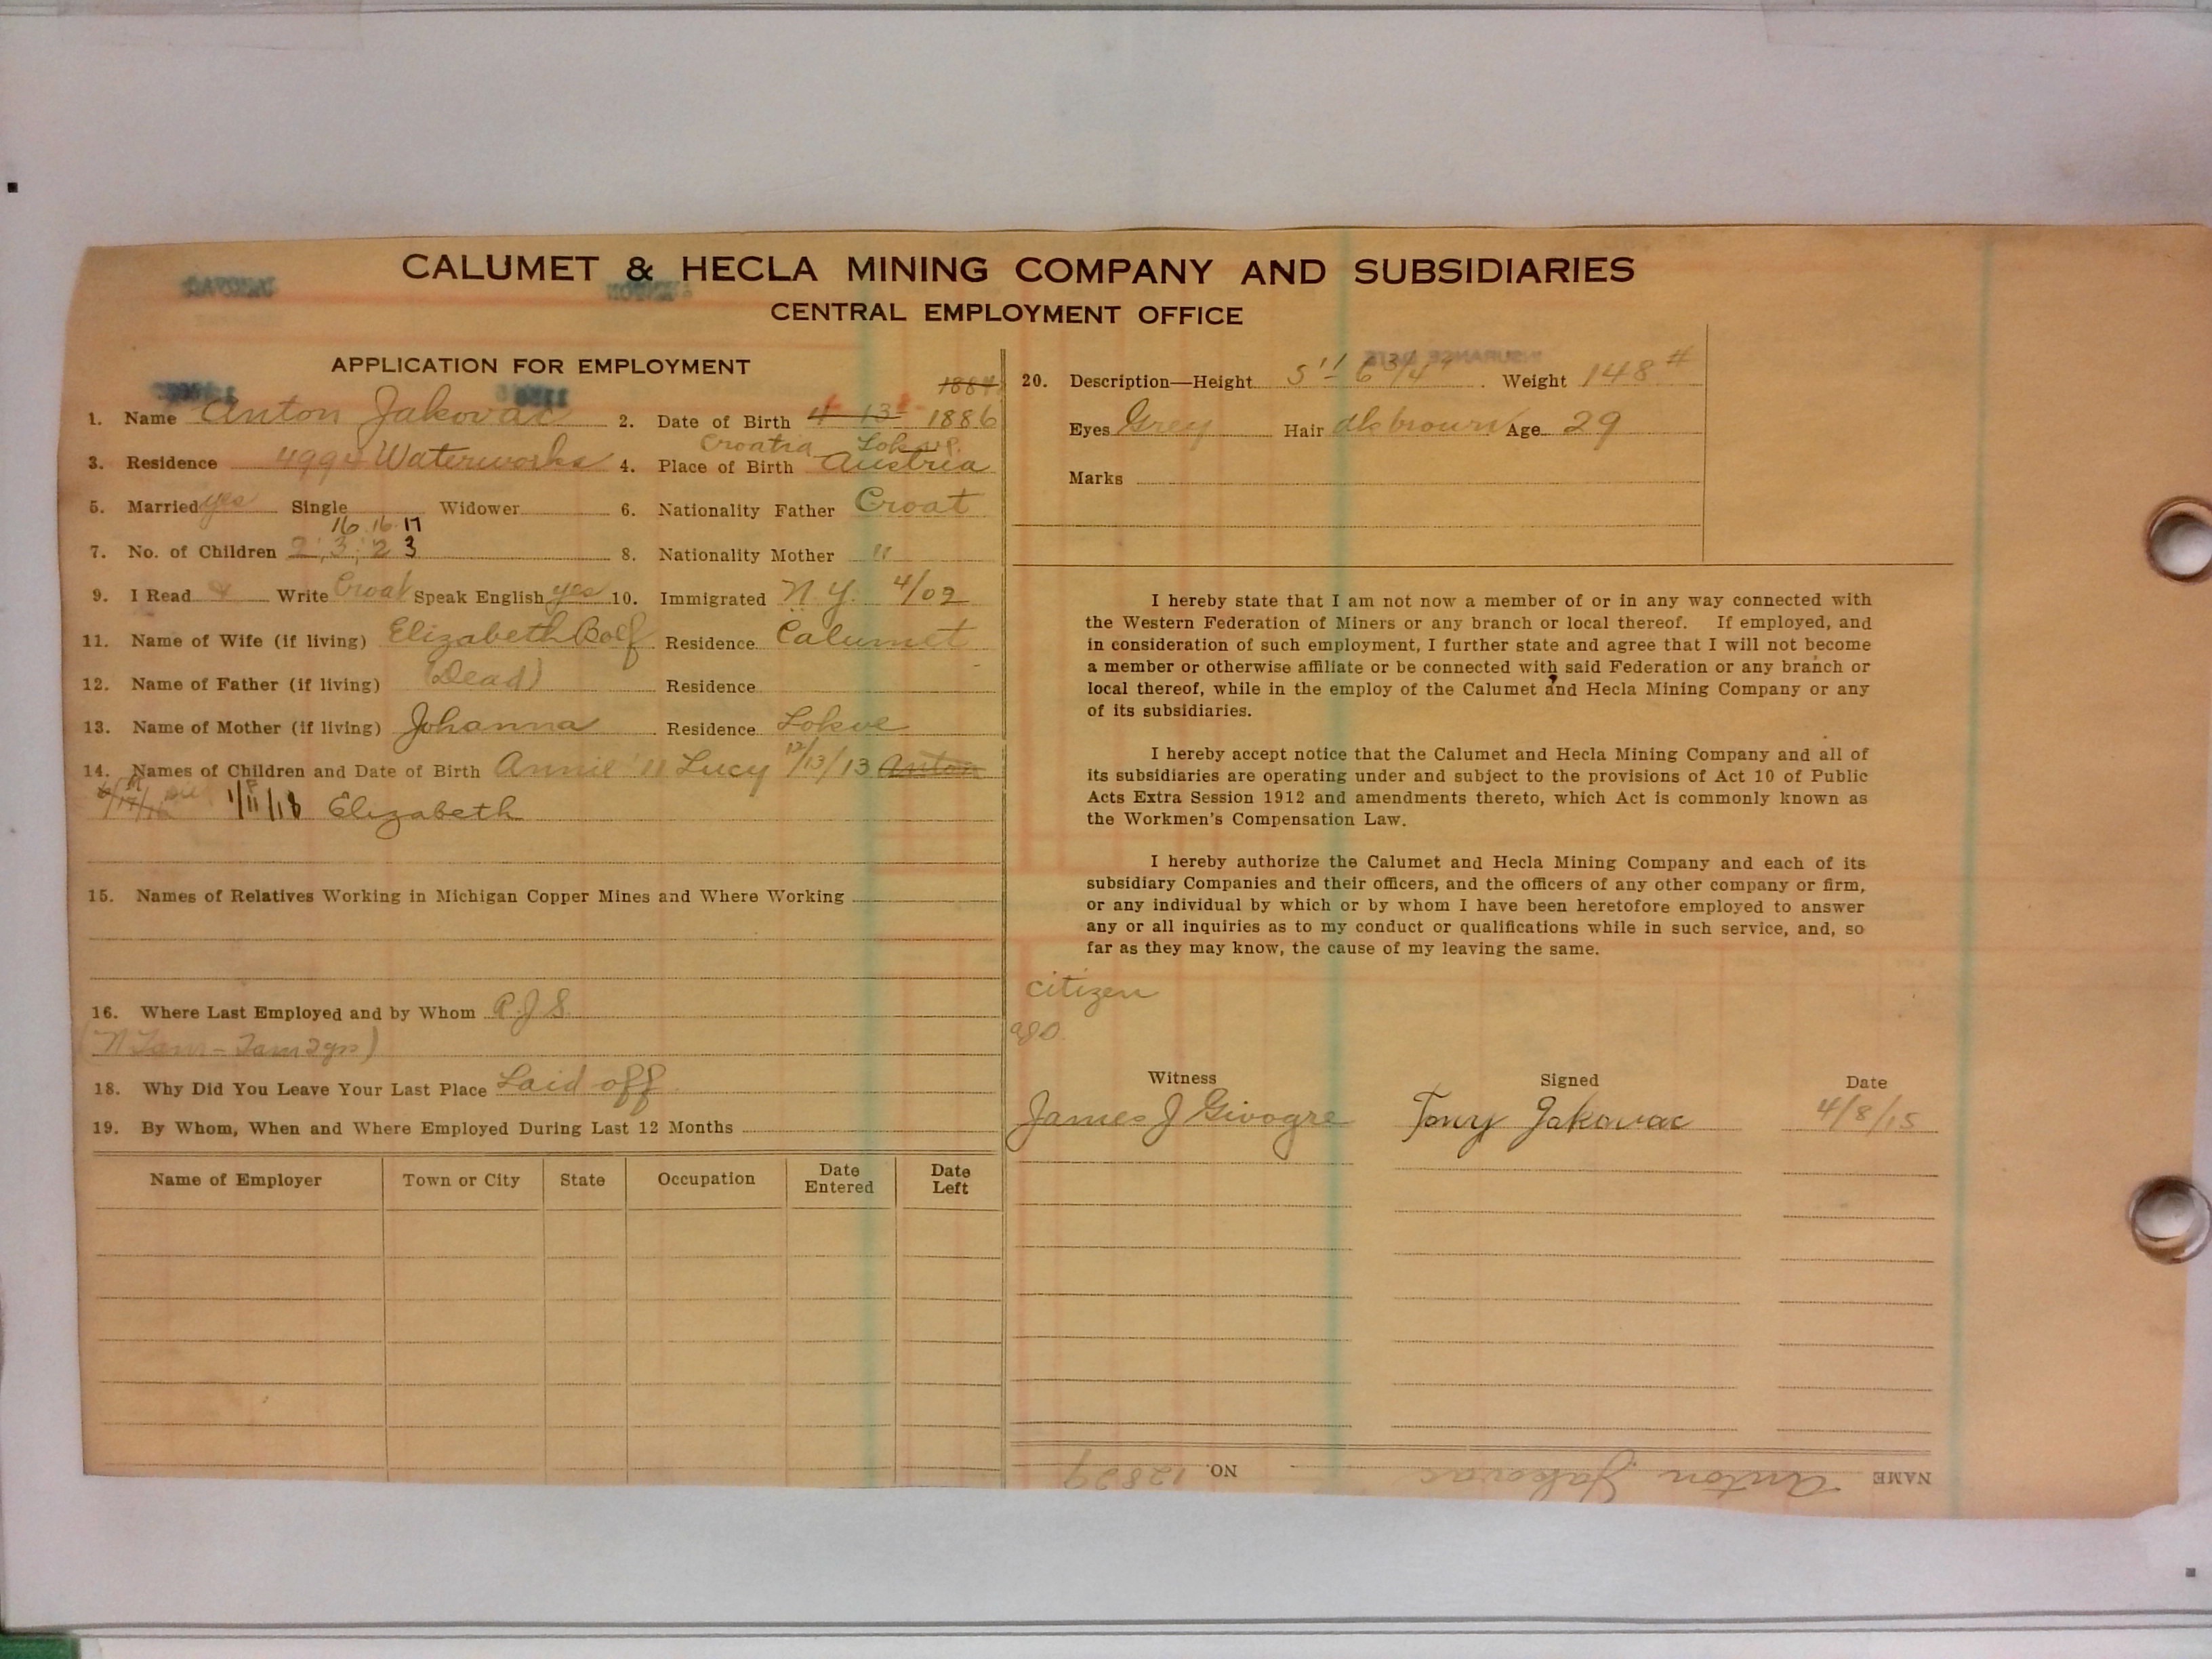 CALUMET & HECLA MINING COMPANY AND SUBSIDIARIES
CENTRAL EMPLOYMENT OFFICE
APPLICATION FOR EMPLOYMENT
1884
1. Name Anton Jakovac 2. Date of Birth 4 13 1886
Croatia Lokve
3. Residence 4994 Waterworks 4. Place of Birth Austria
5. Married yes Single Widower 6. Nationality Father Croat
16 16 17
7. No. of Children 2; 3; 2 3 8. Nationality Mother "
9. I Read & Write Croat Speak English yes 10. Immigrated N.Y. 4/02
11. Name of Wife (if living) Elizabeth Bolf Residence Calumet
12. Name of Father (if living) (Dead) Residence
13. Name of Mother (if living) Johanna Residence Lokve
14. Names of Children and Date of Birth Annie '11 Lucy 12/13/13 Anton
1/11/18 Elizabeth
15. Names of Relatives Working in Michigan Copper Mines and Where Working
16. Where Last Employed and by Whom
18. Why Did You Leave Your Last Place Laid off
19. By Whom, When and Where Employed During Last 12 Months
Name of Employer Town or City State Occupation Date Entered Date Left
20. Description—Height 5' 6 3/4" Weight 148 #
Eyes Grey Hair dk brown Age 29
Marks
I hereby state that I am not now a member of or in any way connected with
the Western Federation of Miners or any branch or local thereof. If employed, and
in consideration of such employment, I further state and agree that I will not become
a member or otherwise affiliate or be connected with said Federation or any branch or
local thereof, while in the employ of the Calumet and Hecla Mining Company or any
of its subsidiaries.
I hereby accept notice that the Calumet and Hecla Mining Company and all of
its subsidiaries are operating under and subject to the provisions of Act 10 of Public
Acts Extra Session 1912 and amendments thereto, which Act is commonly known as
the Workmen's Compensation Law.
I hereby authorize the Calumet and Hecla Mining Company and each of its
subsidiary Companies and their officers, and the officers of any other company or firm,
or any individual by which or by whom I have been heretofore employed to answer
any or all inquiries as to my conduct or qualifications while in such service, and, so
far as they may know, the cause of my leaving the same.
citizen
Witness Signed Date
James J Givogre Tony Jakovac 4/8/15
NAME Anton Jakovac NO. 12829